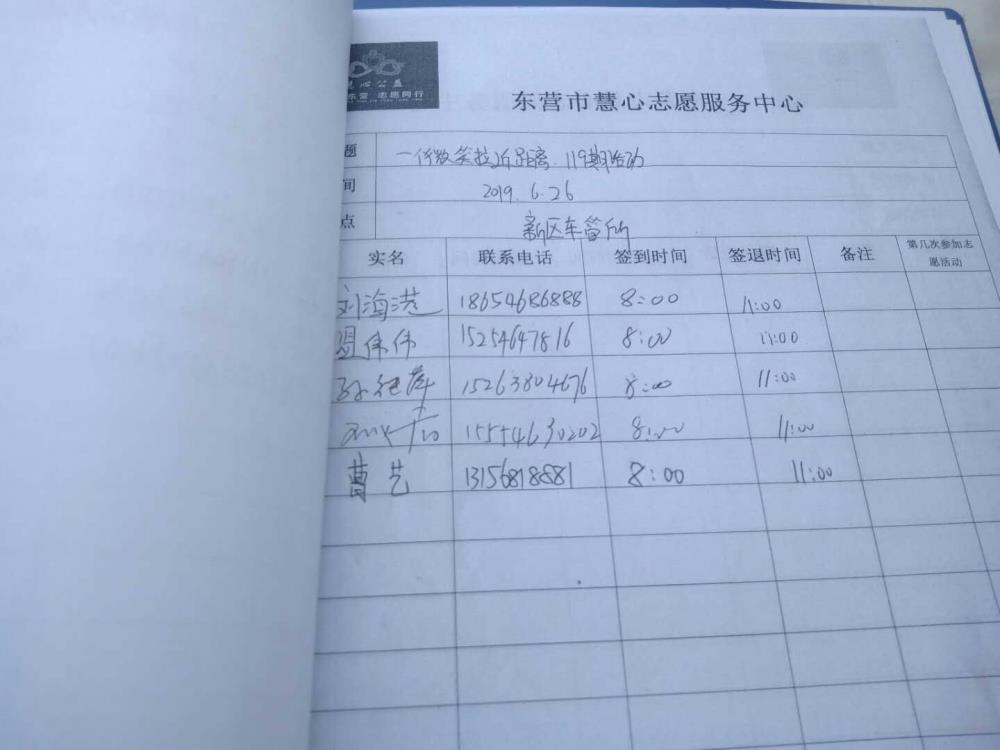 心公益
东营 志愿同行
东营市慧心志愿服务中心
题 一份微笑拉近距离 119期活动
间 2019.6.26
点 新区车管所
实名 联系电话 签到时间 签退时间 备注 第几次参加志
愿活动
刘海港 18654686888 8:00 11:00
伟伟 15254647816 8:00 11:00
孙 15263804676 8:00 11:00
15554630202 8:00 11:00
曹艺 13156818881 8:00 11:00